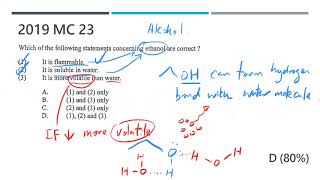 2019 MC 23
Alcohol.
Which of the following statements concerning ethanol are correct ?
(1) It is flammable.
(2) It is soluble in water.
(3) It is more volatile than water.
A. (1) and (2) only
B. (1) and (3) only
C. (2) and (3) only
D. (1), (2) and (3)
OH can form hydrogen
bond with water molecule.
IF ↓ more volatile
H
O
H
O
H
H
O
H
D (80%)